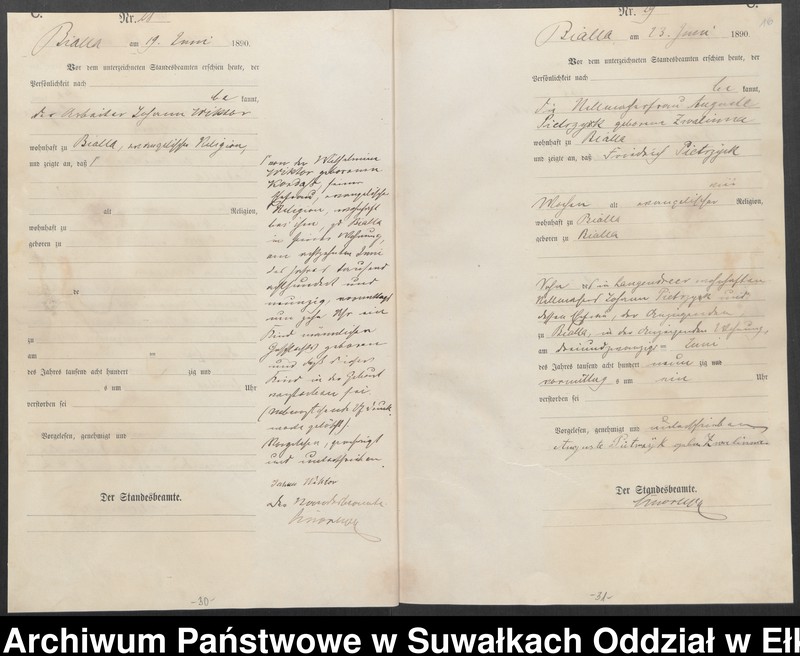 C.
Nr. 18
Bialla am 19. Juni 1890.
Vor dem unterzeichneten Standesbeamten erschien heute, der
Persönlichkeit nach
be kannt,
der Arbeiter Johann Wiktor
wohnhaft zu Bialla, evangelischer Religion,
und zeigte an, daß
alt Religion,
wohnhaft zu
geboren zu
de
zu
am ten
des Jahres tausend acht hundert zig und
s um Uhr
verstorben sei
Vorgelesen, genehmigt und
Der Standesbeamte.
von der Wilhelmina
Wiktor geborenen
Kordass, seiner
Ehefrau, evangelischer
Religion, wohnhaft
bei ihm, zu Bialla
in seiner Wohnung,
am achtzehnten Juni
des Jahres tausend
achthundert und
neunzig vormittags
um zehn Uhr ein
Kind männlichen
Geschlechts geboren
und daß dieses
Kind in der Geburt
verstorben sei.
Vorgelesen, genehmigt
und unterschrieben.
Johann Wiktor
Der Standesbeamte
-30-
C.
Nr. 19
16
Bialla am 23. Juni 1890.
Vor dem unterzeichneten Standesbeamten erschien heute, der
Persönlichkeit nach
be kannt,
die Auguste
Pietrzyk geborene Zwalinna
wohnhaft zu Bialla
und zeigte an, daß Friedrich Pietrzyk
ein
Wochen alt evangelischer Religion,
wohnhaft zu Bialla
geboren zu Bialla
Sohn des in Langendreer wohnhaften
Johann Pietrzyk und
dessen Ehefrau, der Anzeigenden
zu Bialla, in der Anzeigenden Wohnung,
am dreiundzwanzigsten Juni
des Jahres tausend acht hundert neun zig und
vormittag s um ein Uhr
verstorben sei
Vorgelesen, genehmigt und unterschrieben
Auguste Pietrzyk geb. Zwalinna
Der Standesbeamte.
-31-
Archiwum Państwowe w Suwałkach Oddział w Ełk